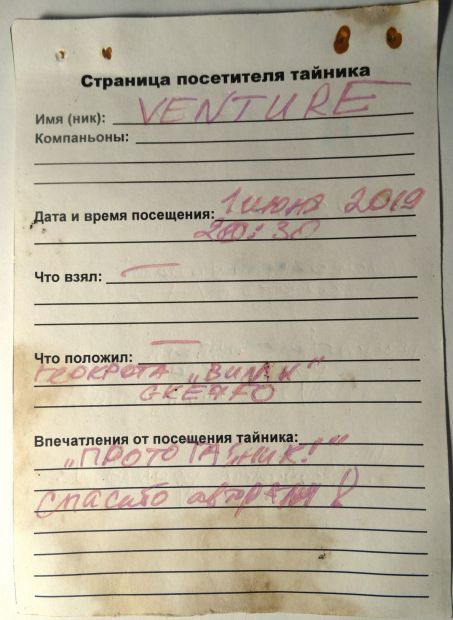 Страница посетителя тайника
Имя (ник): VENTURE
Компаньоны:
Дата и время посещения: 1 июня 2019
20:30
Что взял: —
Что положил: —
ГЕОКРОТА „ВИЛКИ"
GKEAFO
Впечатления от посещения тайника:
„ПРОТОТАЙНИК!"
Спасибо авторам!